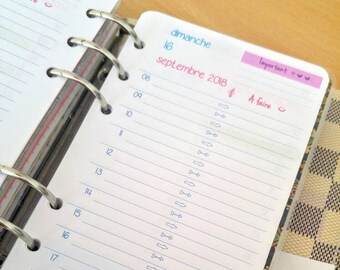 dimanche
16
septembre 2018
Important
À faire
08
09
10
11
12
13
14
15
16
17